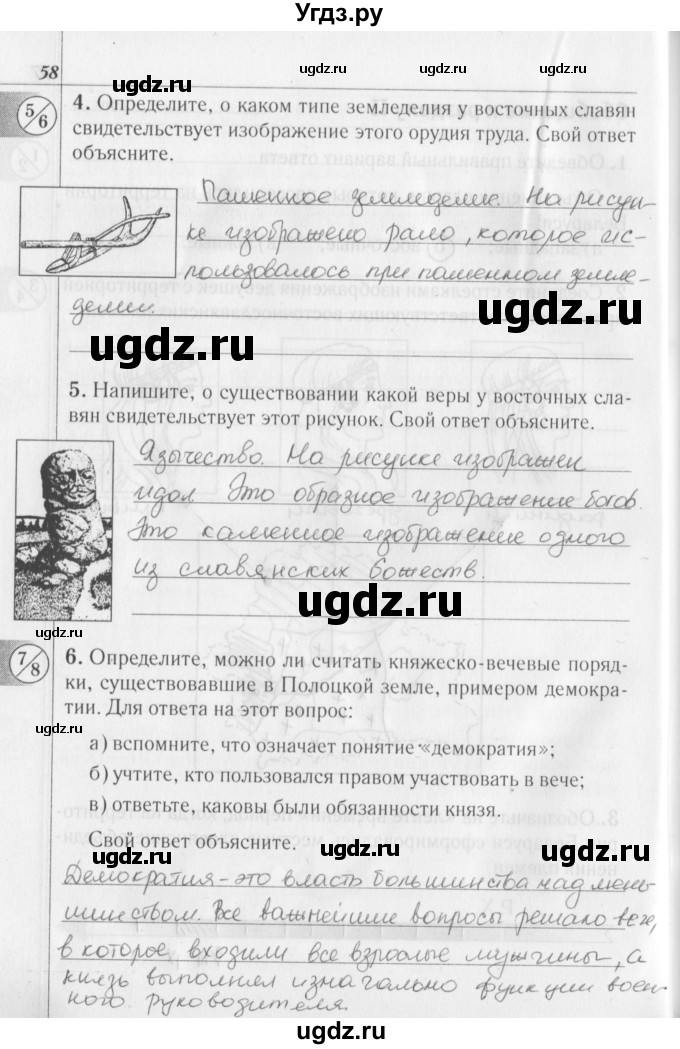 Угдз.ру
58
ugdz.ru
5/6
4. Определите, о каком типе земледелия у восточных славян
свидетельствует изображение этого орудия труда. Свой ответ
объясните.
Пашенное земледелие. На рисун-
ке изображено рало, которое ис-
пользовалось при пашенном земле-
делии.
ugdz.ru
ugdz.ru
5. Напишите, о существовании какой веры у восточных сла-
вян свидетельствует этот рисунок. Свой ответ объясните.
Язычество. На рисунке изображен
идол. Это образное изображение богов.
Это каменное изображение одного
из славянских божеств.
ugdz.ru
7/8
6. Определите, можно ли считать княжеско-вечевые поряд-
ки, существовавшие в Полоцкой земле, примером демокра-
тии. Для ответа на этот вопрос:
а) вспомните, что означает понятие «демократия»;
б) учтите, кто пользовался правом участвовать в вече;
в) ответьте, каковы были обязанности князя.
Свой ответ объясните.
ugdz.ru
Демократия - это власть большинства над мень-
шинством. Все важнейшие вопросы решало вече,
в которое входили все взрослые мужчины, а
князь выполнял изначально функции воен-
ного руководителя.
ugdz.ru
ugdz.ru